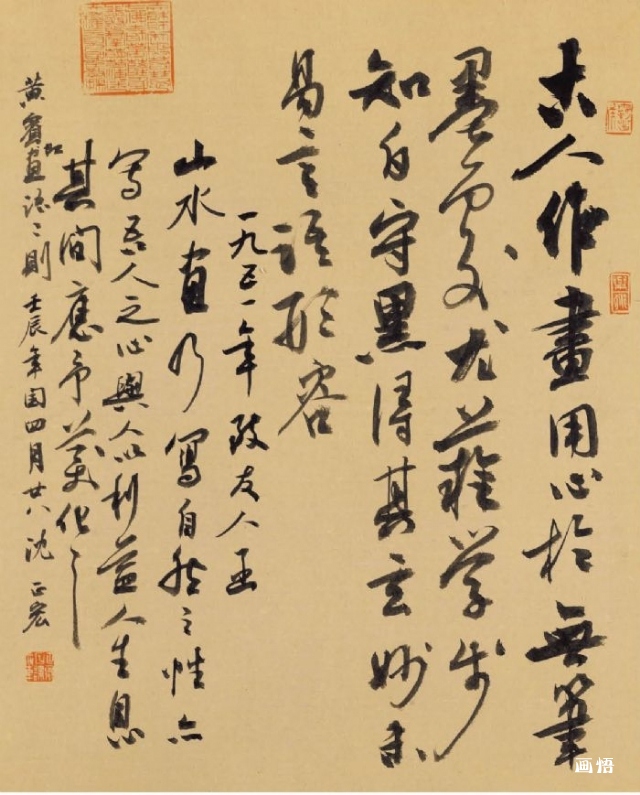 古人作畫用心於無筆
墨處尤難學步
知白守黑得其玄妙未
易言語形容
一九五一年致友人函
山水畫乃寫自然之性亦
寫吾人之心與人以利益人生息
其間應予美化之
黃賓虹畫語二則 壬辰年閏四月廿八 沈正宏
画悟